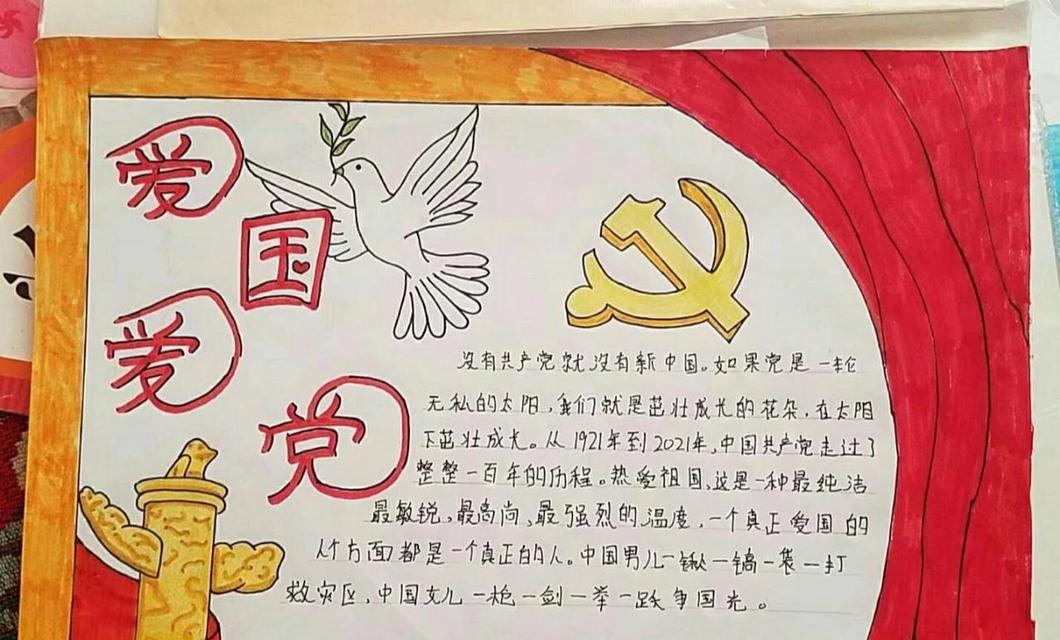 爱
国
爱
党
没有共产党就没有新中国。如果党是一轮
无私的太阳,我们就是茁壮成长的花朵,在太阳
下茁壮成长。从1921年到2021年,中国共产党走过了
整整一百年的历程。热爱祖国,这是一种最纯洁
最敏锐,最高尚,最强烈的温度,一个真正爱国的
人个方面都是一个真正的人。中国男儿一锹一镐一袋一打
救灾区,中国女儿一枪一剑一拳一跃争国光。